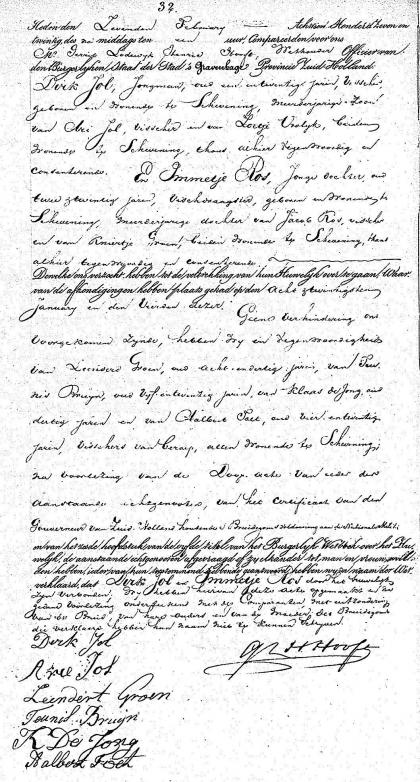 32.
Heden den Zevenden February Achttien Honderd Zeven en
twintig, des na middags ten een uur, Compareerden voor ons
Lodewyk Hendrik Hoofs Wethouder Officier van
den Burgerlyken Staat der Stad 's Gravenhage Provincie Zuid-Holland
Dirk Jol, Jongman, oud een en twintig jaren, Visscher
geboren en wonende te Schevening, meerderjarige Zoon
van Ari Jol, visscher en van Vrolyk, beiden
wonende te Schevening, thans alhier tegenwoordig en
consenterende. En Immetje Ros, Jonge dochter, oud
twee & twintig jaren, geboren en wonende te
Schevening, meerderjarige dochter van Jacob Ros, visscher
en van Groen, beiden wonende te Schevening, thans
alhier tegenwoordig en consenterende.
Dewelke ons verzocht hebben tot de voltrekking van hun Huwelyk over te gaan Waar-
van de afkondigingen hebben plaats gehad op den acht & twintigsten
January en den Vierden dezer. Geene verhindering ons
voorgekomen zynde, hebben Wy in tegenwoordigheid
van Leendert Groen, oud acht en dertig jaren, van Teu-
nis Bruyn, oud vyf en twintig jaren, van Klaas de Jong, oud
dertig jaren en van Aalbert oud vier en twintig
jaren, visschers van beroep, allen wonende te Schevening,
na voorlezing van de Doop acte van ieder der
aanstaande echtgenooten, van het certificaat van den
Gouverneur van Zuid-Holland
en van het zesde hoofdstuk van de titel van het Burgerlyk Wetboek over het Hu-
welyk, de aanstaande echtgenooten afgevraagd of zy elkander tot man en vrouw
hebben
verklaard, dat Dirk Jol en Immetje Ros door het huwelyk
zyn verbonden. Wy hebben hiervan deze acte opgemaakt en na
gedane voorlezing onderteekend met de Comparanten, met uitzondering
van de Bruid, van hare ouders en van de moeder des Bruidegoms
die verklaard hebben hun naam niet te kunnen schryven.
Dirk Jol
Aree Jol
Leendert Groen
Teunis Bruijn
K De Jong
Aalbert